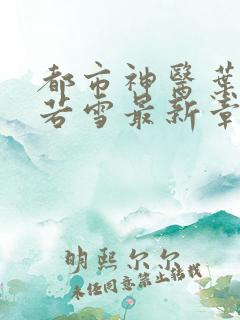 都市神醫葉
若雪最新章
明熙尔尔
未经同意禁止转载